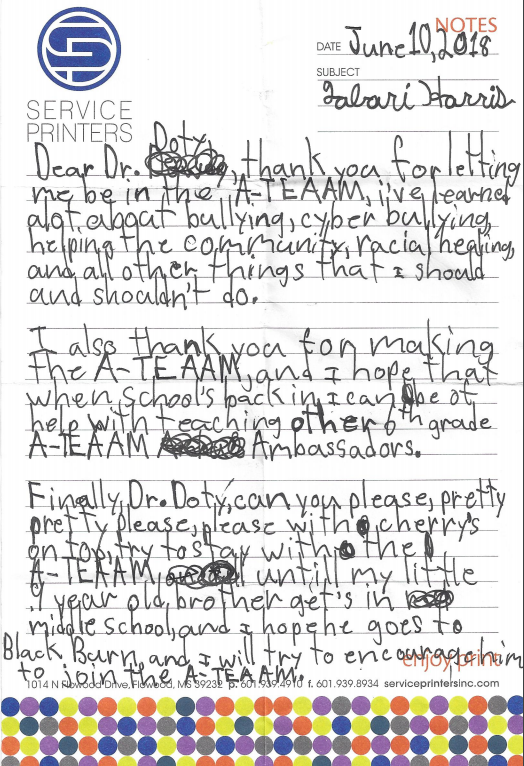 NOTES
DATE June 10, 2018
SUBJECT
Jabari Harris
SERVICE
PRINTERS
Doty
Dear Dr. , thank you for letting
me be in the A-TEAAM, i've learned
alot about bullying, cyber bullying,
helping the community, racial healing,
and all other things that i should
and shouldn't do.
I also thank you for making
the A-TEAAM, and i hope that
when school's back in i can be of
help with teaching other 6th grade
A-TEAAM Ambassadors.
Finally, Dr. Doty, can you please, pretty
pretty please, please with cherry's
on top, try to stay with the
A-TEAAM, untill my little
year old, brother get's in
middle school, and i hope he goes to
Black Burn, and i will try to encourage him
to join the A-TEAAM.
enjoy print
1014 N Flowood Drive, Flowood, MS 39232 p. 601.939.4910 f. 601.939.8934 serviceprintersinc.com